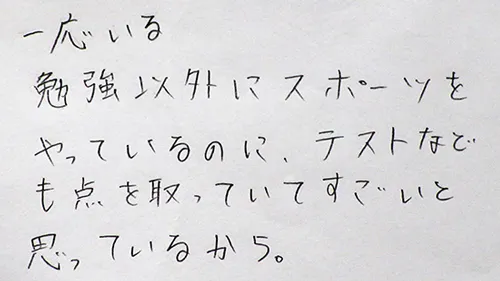 一応いる
勉強以外にスポーツを
やっているのに、テストなど
も点を取っていてすごいと
思っているから。